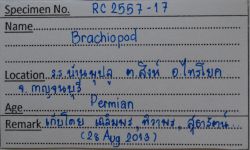 Specimen No. RC 2557-17
Name
Brachiopod
Location ร.ร.บ้านพุปลู ต.สิงห์ อ.ไทรโยค
จ.กาญจนบุรี
Age Permian
Remark เก็บโดย เฉลิมพร, ทิวาพร, สุธารัตน์
(28 Aug 2013)